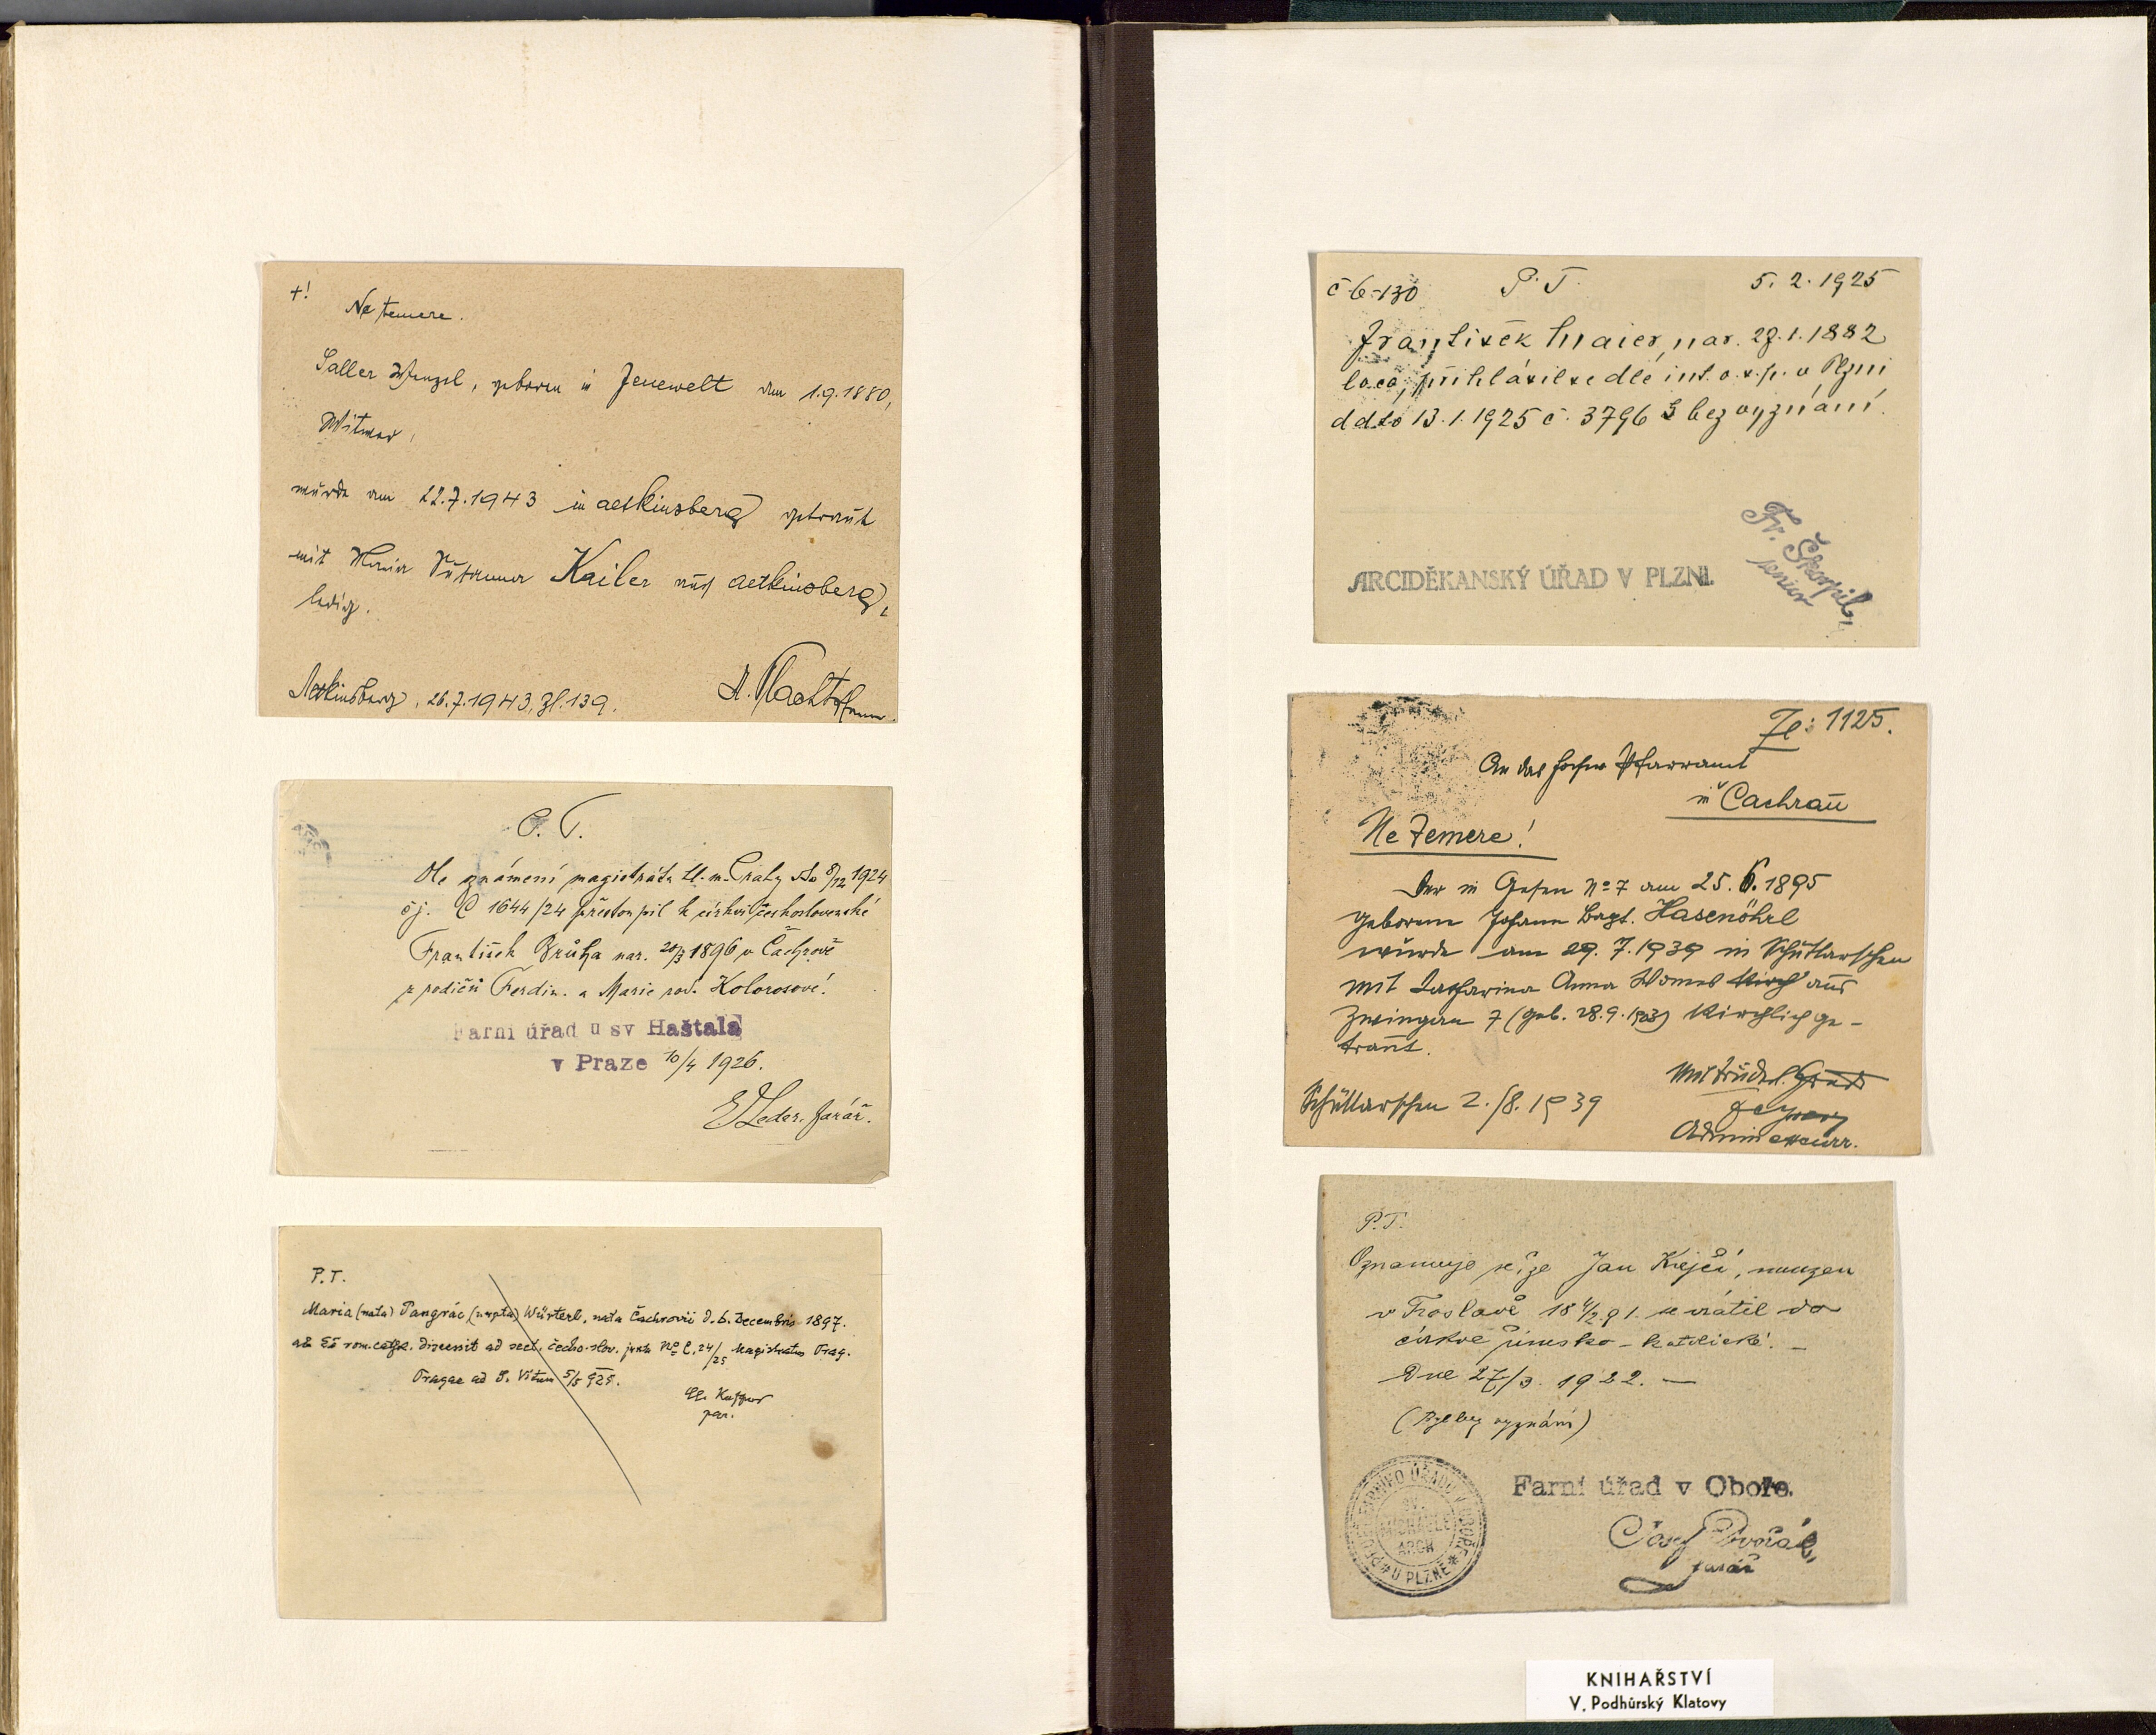 +!
Ne temere.
Saller Wenzel, geboren in Jenewelt am 1.9.1880,
Witwer,
wurde am 22.7.1943 in getraut
mit Maria Susanna Kailer aus
ledig.
26.7.1943, Zl. 139.
P. T.
Dle známení magistrátu hl. m. Prahy ddo 8/12 1924
čj. C 1644/24 přestoupil k církvi československé
František Brůha nar. 1896 v Čachrově
z rodičů Ferdin. a Marie roz. Kolorosové.
Farní úřad u sv Haštala
v Praze 10/4 1926.
farář.
P. T.
Maria (nata) Pangrác (nupta) Würterl, nata Čachrovii d. 6. Decembris 1897.
ab Ea rom. cath. discessit ad sect. čecho-slov. juxta No C. 24/25 Magistratus Prag.
Pragae ad S. Vitum 5/5 925.
par.
č 6-130 P. T. 5. 2. 1925
František Maier, nar. 29.1.1882
loco, přihlásil se dle int. o. s. p. v Plzni
ddto 13.1.1925 č. 3796 bez vyznání.
ARCIDĚKANSKÝ ÚŘAD V PLZNI.
Fr. Škorpil,
senior
Zl: 1125.
An das hochw Pfarramt
in Cachrau
Ne Temere!
Der in Gesen No 7 am 25. 6. 1895
geborene Johann Bapt. Hasenöhrl
wurde am 29. 7. 1939 in Schüttarschen
mit Katharina Anna aus
Zwingau 7 (geb. 28.9.1903) kirchlich ge-
traut.
Schüttarschen 2./8. 1939
P. T.
Oznamuje se, že Jan Krejčí, narozen
v 18 4/2 91. se vrátil do
církve římsko-katolické. -
Dne 27/3. 1922. -
(Byl bez vyznání)
FARNÍHO ÚŘADU V OBOŘE
SV.
MICHAELE
ARCH
U PLZNĚ
Farní úřad v Oboře.
Josef Dvořák,
farář
KNIHAŘSTVÍ
V. Podhůrský Klatovy